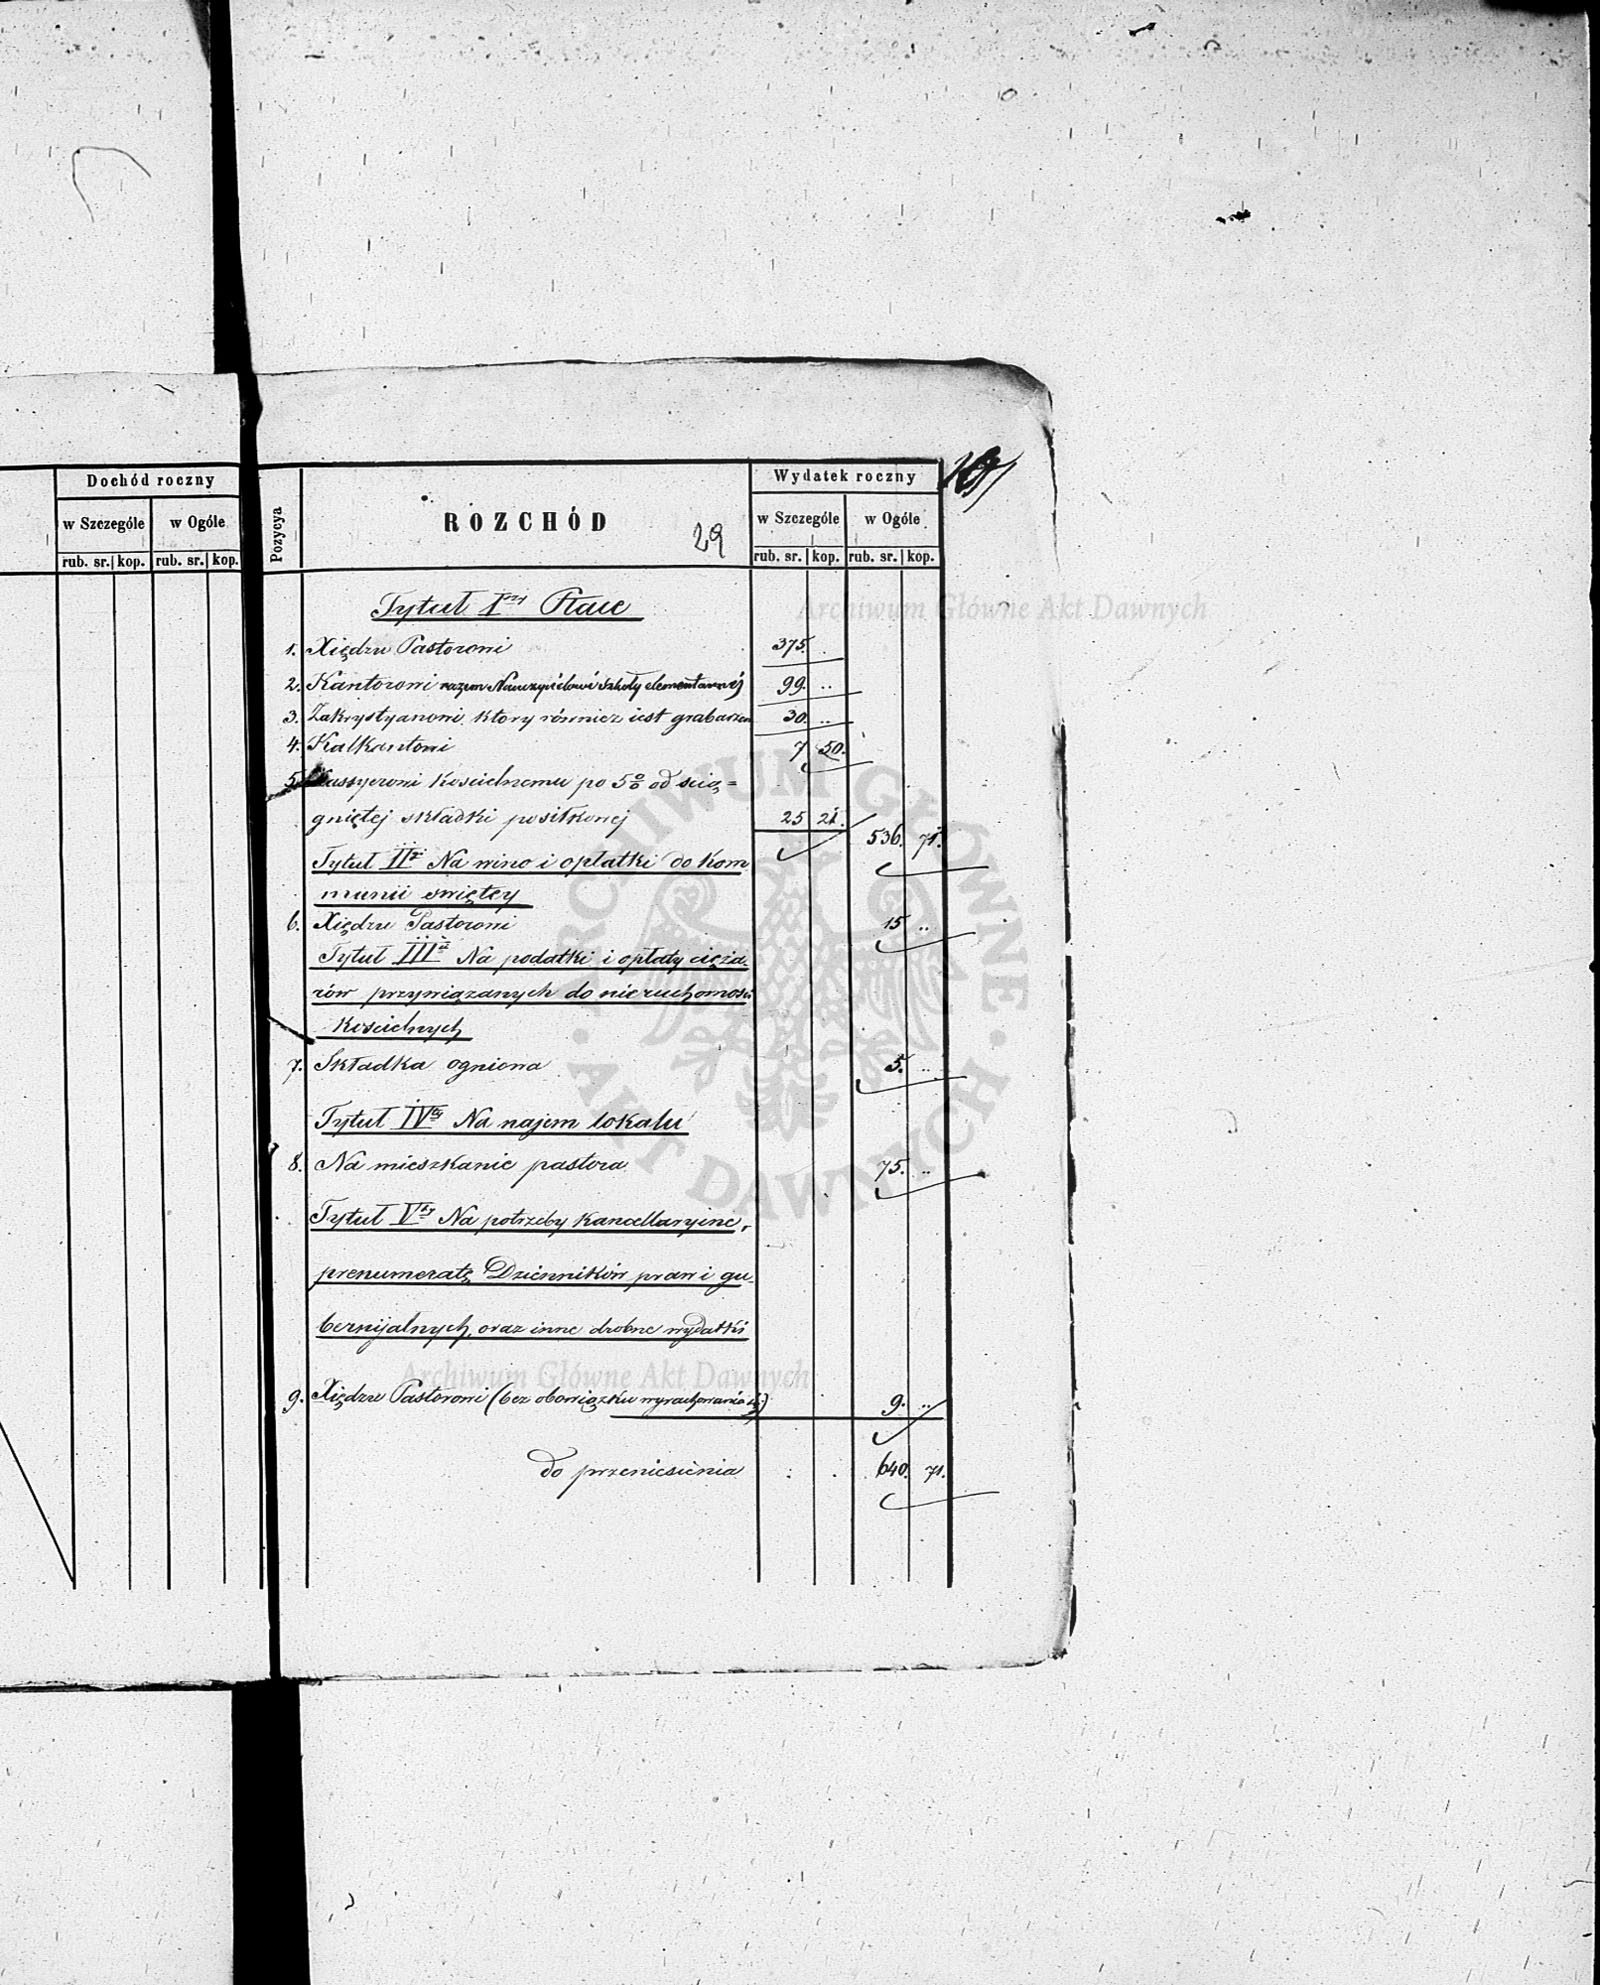 Dochód roczny
w Szczególe w Ogóle
rub. sr. kop. rub. sr. kop.
Pozycya
ROZCHÓD
29
Wydatek roczny
w Szczególe w Ogóle
rub. sr. kop. rub. sr. kop.
Tytuł Iszy Płace
1. Xiędzu Pastorowi 375. .
2. Kantorowi razem Nauczycielowi Szkoły elementarnéj 99. ..
3. Zakrystyanowi, ktory również iest grabarzem 30. ..
4. Kalkantowi 7 50.
5. Kassyerowi Koscielnemu po 5% od scią=
gniętej składki posiłkowej 25 21. 536. 71.
Tytuł IIgi Na wino i opłatki do kom
munii swiętey
6. Xiędzu Pastorowi 15 ..
Tytuł IIIci Na podatki i opłaty cięża-
rów przywiązanych do nieruchomości
Koscielnych
7. Składka ogniowa 5. ..
Tytuł IVty Na najem lokalu
8. Na mieszkanie pastora 75. ..
Tytuł Vty Na potrzeby Kancellaryjne,
prenumeratę Dzienników praw i gu-
bernijalnych, oraz inne drobne wydatki
9. Xiędzu Pastorowi (bez obowiązku wyrachowania się) 9. ..
do przeniesienia 640. 71.
Archiwum Główne Akt Dawnych
ARCHIWUM GŁÓWNE · AKT DAWNYCH ·
Archiwum Główne Akt Dawnych